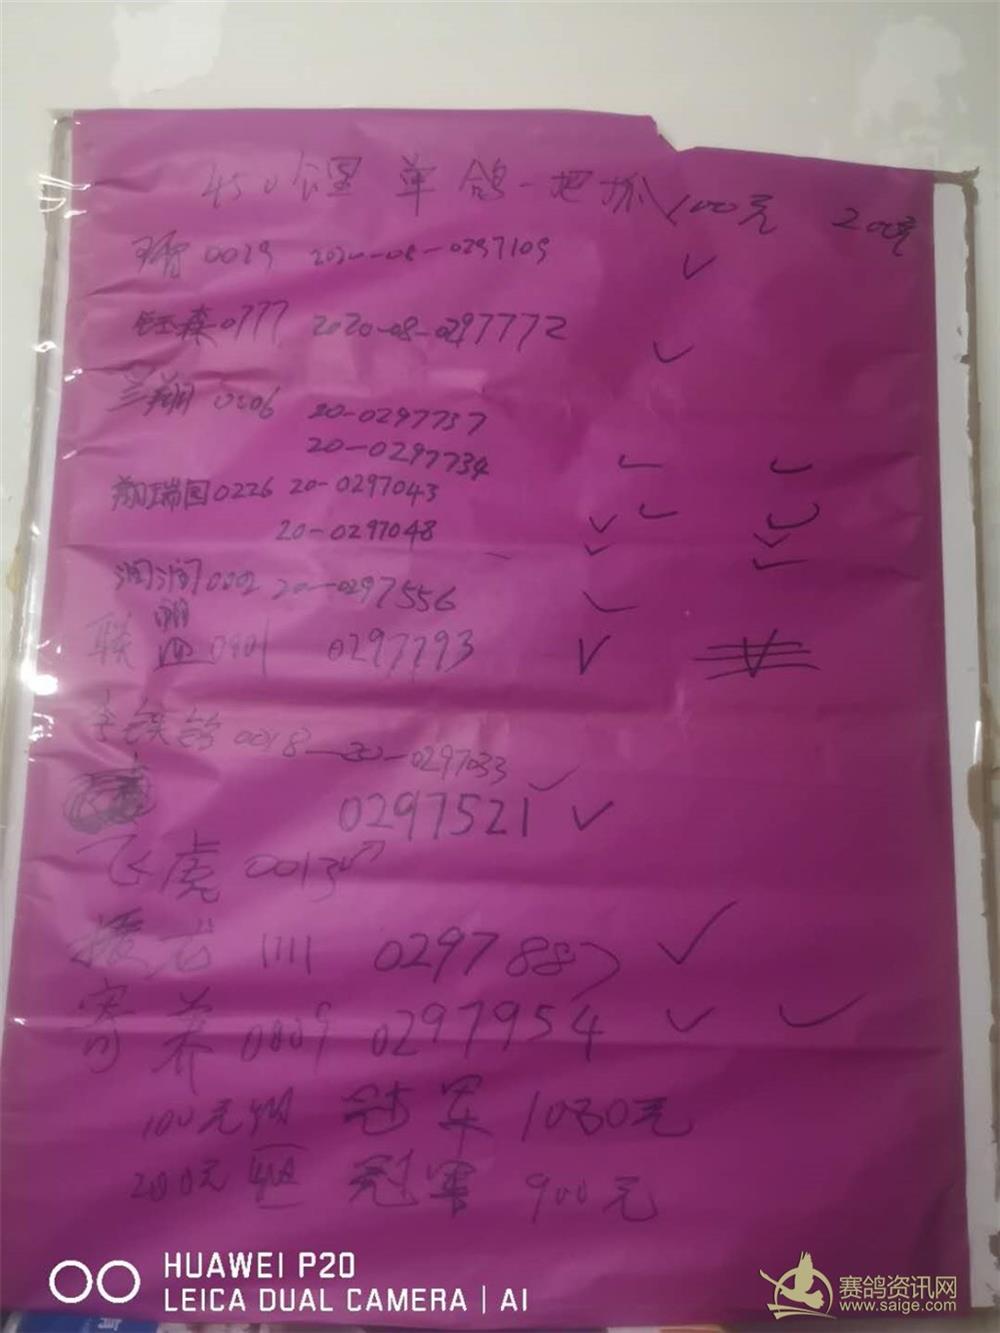 450 公里 单鸽一把抓 100元 200元
0029 2020-08-0297109
钰森0777 2020-08-0297772
兰翔 0206 20-0297737
20-0297734
翔瑞园0226 20-0297043
20-0297048
润润0002 20-0297556
翔
联 0901 0297793
铁 0018-20-0297033
0297521
飞虎 0013
援 1111 029788
寄养 0809 0297954
100元组 冠军 1080元
200元 冠军 900元
HUAWEI P20
LEICA DUAL CAMERA | AI
赛鸽资讯网
www.saige.com